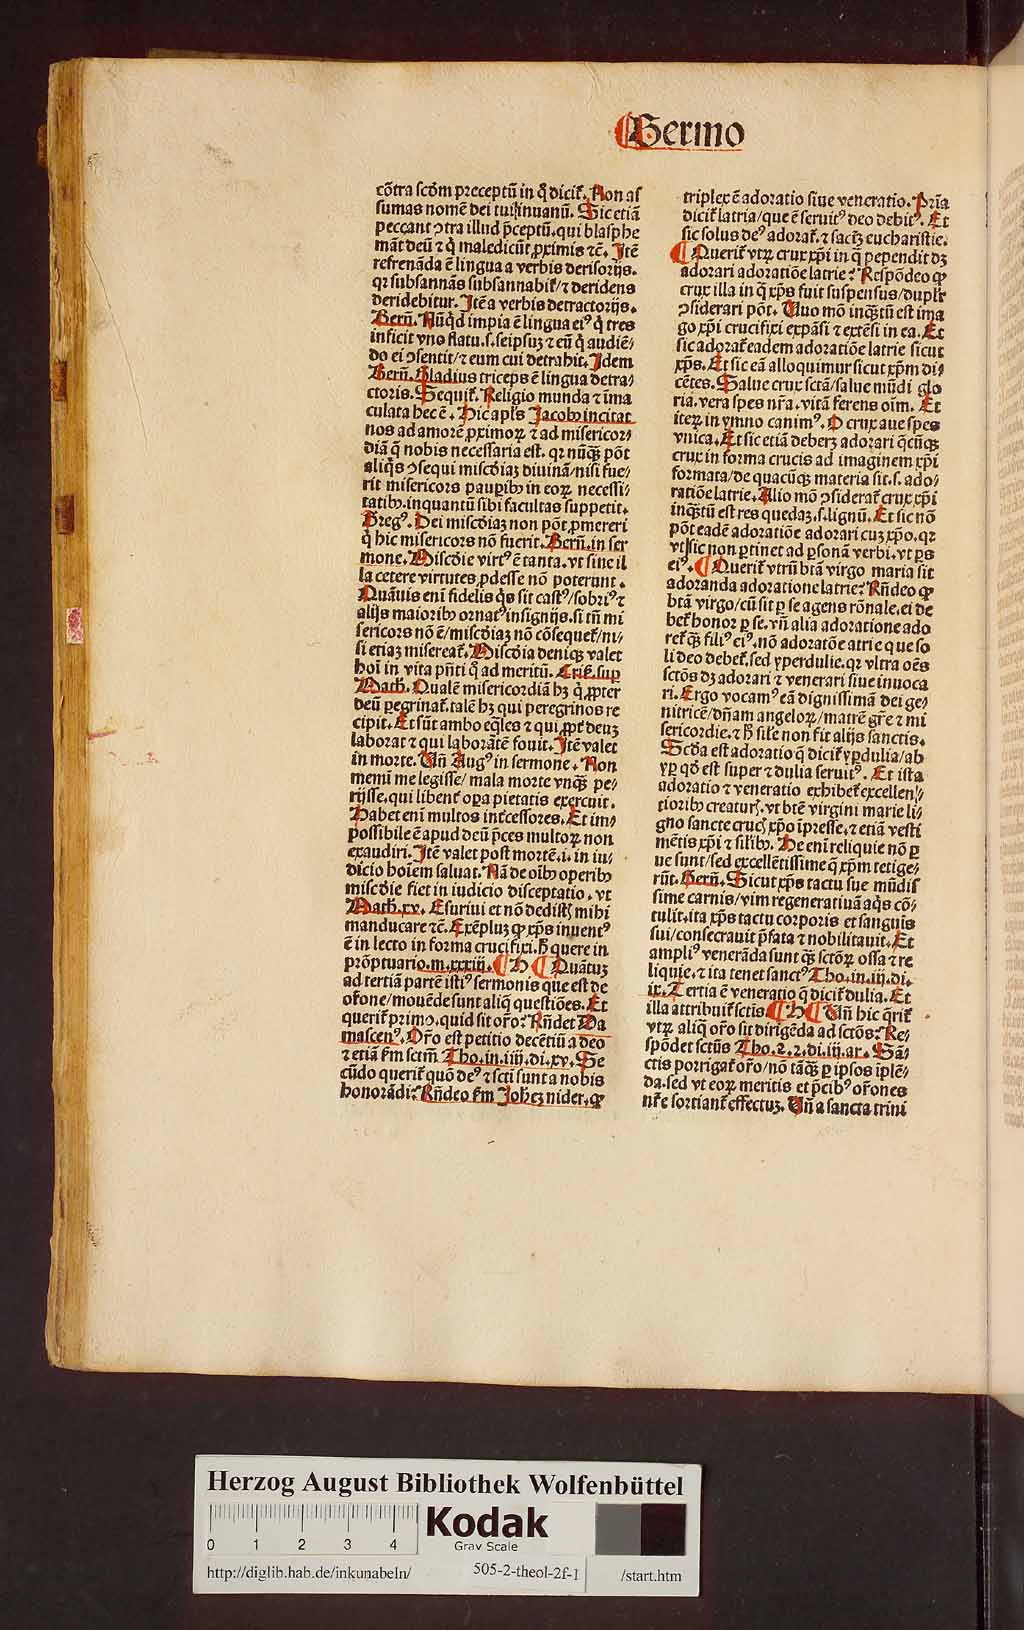 Sermo
cõtra scđm preceptũ in q̃ dicit᷑. Non as
sumas nomẽ dei tui inuanũ. Sic etiã
peccant ɔtra illud p̃ceptũ. qui blasphe
mãt deũ ⁊ q̃ maledicũt ꝓximis ⁊c̃. Itẽ
refrenãda ẽ lingua a verbis derisorijs.
qꝛ subsannãs subsannabit᷑/ ⁊ deridens
deridebitur. Itẽ a verbis detractorijs.
Bern̄. Nũq̃d impia ẽ lingua eiꝰ q̃ tres
inficit vno flatu. s. seipsuꝫ ⁊ eũ q̃ audiẽ⸗
do ei ɔsentit/ ⁊ eum cui detrahit. Idem
Bern̄. Gladius triceps ẽ lingua detra⸗
ctoris. Sequit᷑. Religio munda ⁊ ĩma
culata hec ẽ. Hic apl's Jacobꝰ incitat
nos ad amorẽ ꝓximoꝝ ⁊ ad misericor⸗
diã q̃ nobis necessaria est. qꝛ nũqꝫ põt
aliq̃s ɔsequi miscðiaꝫ diuinã/ nisi fue⸗
rit misericors pauꝑibꝰ in eoꝝ necessi⸗
tatibꝰ. inquantũ sibi facultas suppetit.
Gregꝰ. Dei miscðiaꝫ non põt ꝓmereri
q̃ hic misericors nõ fuerit. Bern̄. in ser
mone. Miscðie virtꝰ ẽ tanta. vt sine il
la cetere virtutes ꝓdesse nõ poterunt.
Quãuis eni fidelis q̃s sit castꝰ/ sobriꝰ ⁊
alijs maioribꝰ ornatꝰ insignijs. si tñ mi
sericors nõ ẽ/ miscðiaꝫ nõ cõsequet᷑/ ni⸗
si etiaꝫ misereat᷑. Miscðia deniqꝫ valet
hoĩ in vita pñti q̃ ad meritũ. Cris̃. sup
Math. Qualẽ misericordiã hꝫ q̃ ꝓpter
deũ peregrinat᷑. talẽ hꝫ qui peregrinos re
cipit. Et sũt ambo eq̃les ⁊ qui ꝓpt᷑ deuꝫ
laborat ⁊ qui laborãtẽ fouit. Itẽ valet
in morte. Vñ Augꝰ in sermone. Non
memi me legisse/ mala morte vnqꝫ pe⸗
rijsse. qui libent᷑ oꝑa pietatis exercuit.
Habet eni multos int᷑cessores. Et im⸗
possibile ẽ apud deũ p̃ces multoꝝ non
exaudiri. Itẽ valet post mortẽ. i. in iu⸗
dicio hoiem saluat. Nã de oĩbꝰ operibꝰ
miscðie fiet in iudicio disceptatio. vt
Math. xv. Esuriui et nõ dedistꝭ mihi
manducare ⁊c̃. Exẽpluꝫ ꝙ xp̃s inuentꝰ
ẽ in lecto in forma crucifixi. h̃ quere in
prõptuario. m. xxxiij. ¶ H ¶ Quãtuꝫ
ad tertiã partẽ istiꝰ sermonis que est de
or̃one/ mouẽde sunt aliq̃ questiões. Et
querit᷑ primo. quid sit or̃o? Rñdet Da
mascenꝰ. Or̃o est petitio decẽtiũ a deo
⁊ etiã fm sctm̃. Tho. in. iiij. di. xv. Se
cũdo querit᷑ quõ deꝰ ⁊ sct̃i sunt a nobis
honorãdi? Rñdeo fm Joh̃eꝫ nider. ꝙ
triplex ẽ adoratio siue veneratio. Prĩa
dicit᷑ latria/ que ẽ seruitꝰ deo debitꝰ. Et
sic solus deꝰ adorat᷑. ⁊ sact̃ꝫ eucharistie.
¶ Querit᷑ vtꝝ crux xp̃i in q̃ pependit dꝫ
adorari adoratiõe latrie? Respõdeo ꝙ
crux illa in q̃ xp̃s fuit suspensus/ duplr̃
ɔsiderari põt. Vno mõ inqꝫtũ est ima
go xp̃i crucifixi expãsi ⁊ extẽsi in ea. Et
sic adorat᷑ eadem adoratiõe latrie sicut
xp̃s. Et sic eã alloquimur sicut xp̃m di⸗
cẽtes. Salue crux sctã/ salue mũdi glo
ria. vera spes nr̃a. vitã ferens oĩm. Et
iteꝝ in ymno canimꝰ. O crux aue spes
vnica. Et sic etiã deberꝫ adorari q̃cũqꝫ
crux in forma crucis ad imaginem xp̃i
formata/ de quacũqꝫ materia sit. s. ado⸗
ratiõe latrie. Alio mõ ɔsiderat᷑ crux xp̃i
inqꝫtũ est res quedaꝫ. s. lignũ. Et sic nõ
põt eadẽ adoratiõe adorari cuꝫ xp̃o. qꝛ
vt sic non ꝑtinet ad ꝑsonã verbi. vt ꝑs
eiꝰ. ¶ Querit᷑ vtrũ btã virgo maria sit
adoranda adoratione latrie? Rñdeo ꝙ
btã virgo/ cũ sit ꝑ se agens rõnale. ei de
bet᷑ honor ꝑ se. vñ alia adoratione ado
ret᷑ qꝫ filiꝰ eiꝰ. nõ adoratõe atrie que so
li deo debet᷑. sed yperdulie. qꝛ vltra oẽs
sctõs dꝫ adorari ⁊ venerari siue inuoca
ri. Ergo vocamꝰ eã dignissimã dei ge⸗
nitricẽ/ dñam angeloꝝ/ matrẽ gr̃e ⁊ mi
sericordie. ⁊ h̃ sile non fit alijs sanctis.
Scðа est adoratio q̃ dicit᷑ yꝑdulia/ ab
yꝑ qð est super ⁊ dulia seruitꝰ. Et ista
adoratio ⁊ veneratio exhibet᷑ excellen⸗
tioribꝰ creaturꝭ. vt btẽ virgini marie li⸗
gno sancte crucꝭ xp̃o ĩpresse. ⁊ etiã vesti
mẽtis xp̃i ⁊ sil'ibꝰ. He eni reliquie nõ ꝑ
ue sunt/ sed excellẽtissime q̃ xp̃m tetige⸗
rũt. Bern̄. Sicut xp̃s tactu sue mũdis
sime carnis/ vim regeneratiuã aq̃s cõ⸗
tulit. ita xp̃s tactu corporis et sanguis
sui/ consecrauit p̃fata ⁊ nobilitauit. Et
ampliꝰ venerãda sunt qꝫ sctõꝝ ossa ⁊ re
liquie. ⁊ ita tenet sanctꝰ Tho. in. iij. di.
ix. Tertia ẽ veneratio q̃ dicit᷑ dulia. Et
illa attribuit᷑ sctis. ¶ H ¶ Vñ hic q̃rit᷑
vtꝝ aliq̃ or̃o sit dirigẽda ad sctõs? Re⸗
spõdet sctũs Tho. 2. 2. di. iij. ar. Sã⸗
ctis porrigat᷑ or̃o/ nõ tãqꝫ ꝑ ipsos ĩplẽ⸗
da. sed vt eoꝝ meritis et p̃cibꝰ or̃ones
nr̃e sortiant᷑ effectuꝫ. Vñ a sancta trini
Herzog August Bibliothek Wolfenbüttel
0 1 2 3 4
Kodak
Gray Scale
http://diglib.hab.de/inkunabeln/ 505-2-theol-2f-1 /start.htm